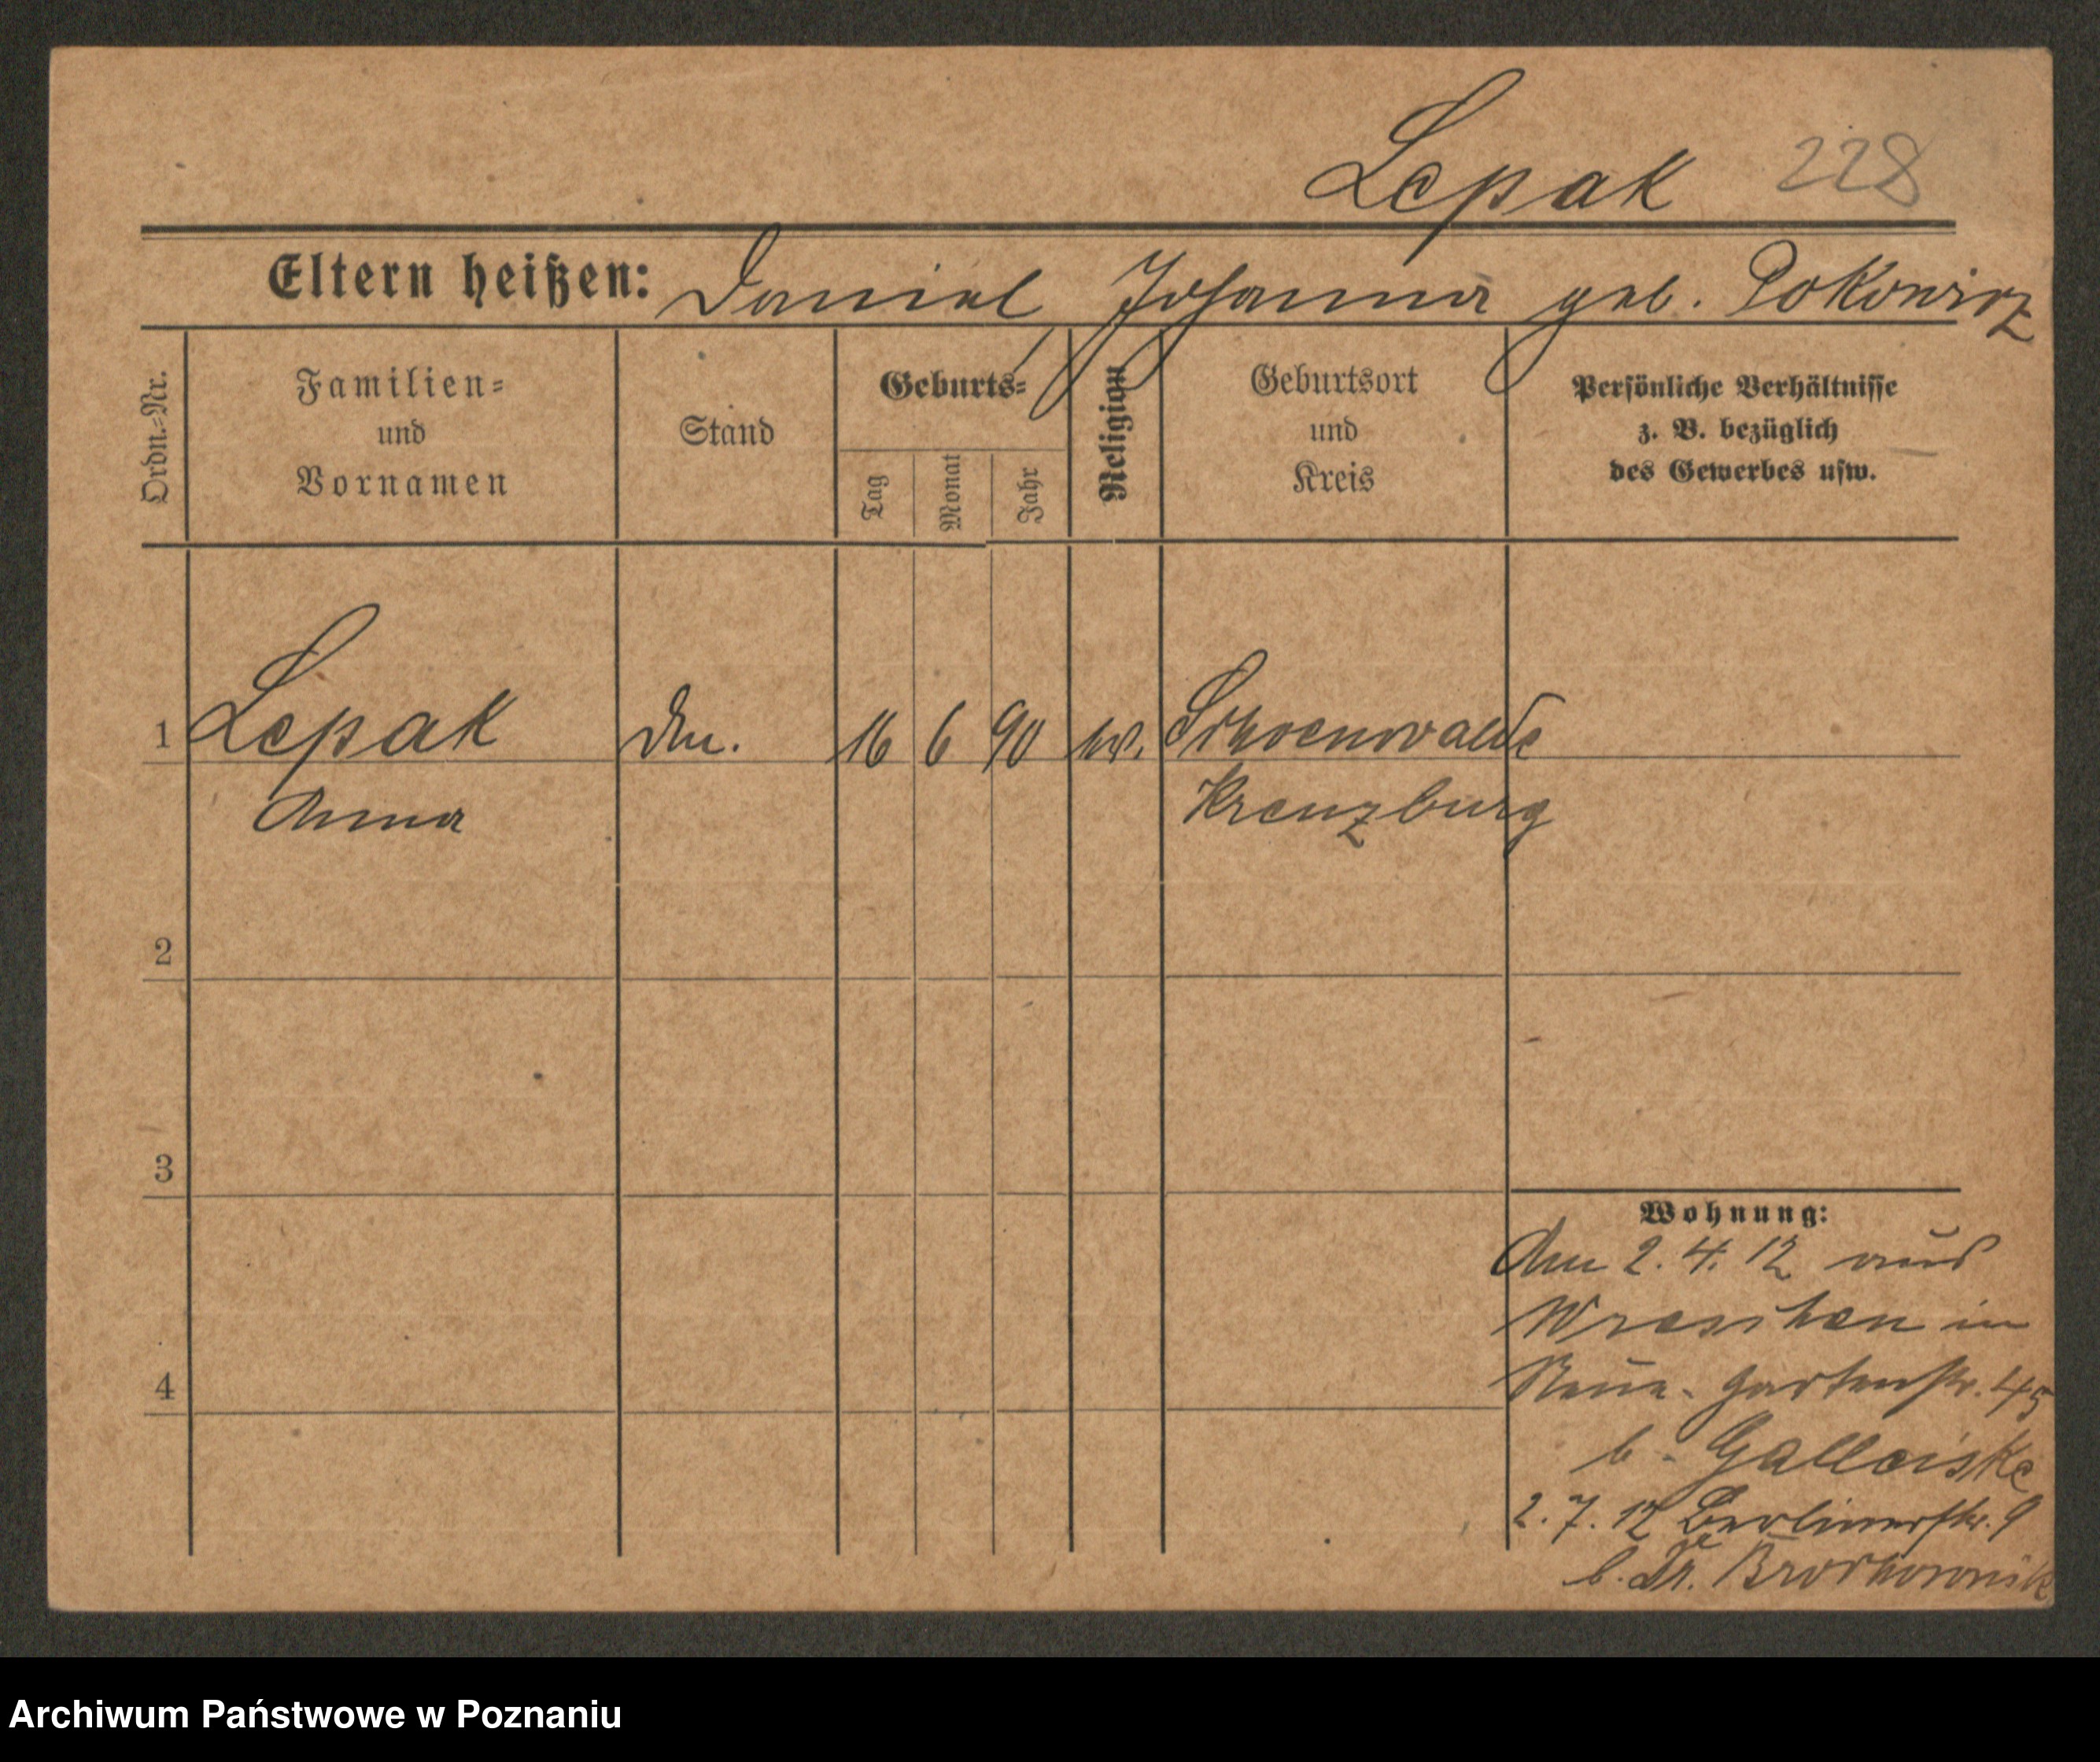 Lepak 228
Eltern heißen: Daniel Johanna geb. Pokowicz
Ordn.-Nr.
Familien-
und
Vornamen
Stand
Geburts-
Tag
Monat
Jahr
Religion
Geburtsort
und
Kreis
Persönliche Verhältnisse
z. B. bezüglich
des Gewerbes usw.
1 Lepak 16 6 90 Schoenwalde
Anna Kreuzburg
2
3
4
Wohnung:
2. 4. 12 aus
Wreschen in
Neue Gartenstr. 45
b. Galleiske
2. 7. 12 Berlinerstr. 9
b. Dr.
Archiwum Państwowe w Poznaniu